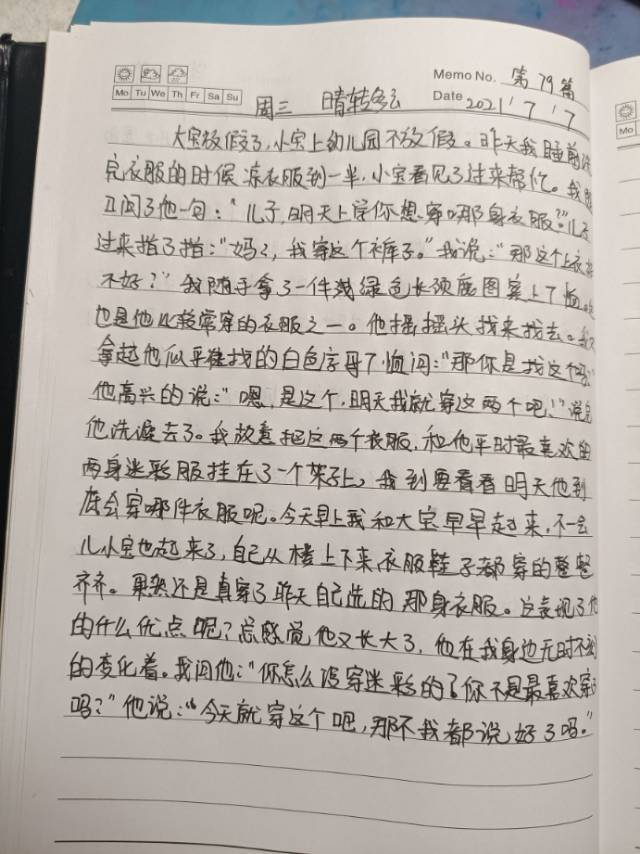 Memo No. 第79篇
Mo Tu We Th Fr Sa Su
Date 2021 7 7
周三 晴转多云
大宝放假了,小宝上幼儿园不放假。昨天我睡前洗
完衣服的时候凉衣服到一半,小宝看见了过来帮忙。我
问了他一句:“儿子,明天上学你想穿哪身衣服?”儿子
过来指了指:“妈妈,我穿这个裤子。”我说:“那这个上衣
不好?”我随手拿了一件浅绿色长颈鹿图案上了恤。
也是他比较常穿的衣服之一。他摇摇头找来找去。我
拿起他似乎在找的白色字母了恤问:“那你是找这个吗?”
他高兴的说:“嗯,是这个,明天我就穿这两个吧!”说完
他洗漱去了。我故意把这两个衣服,和他平时最喜欢的
两身迷彩服挂在了一个架子上,我到要看看明天他到
底会穿哪件衣服呢。今天早上我和大宝早早起来,不一会
儿小宝也起来了,自己从楼上下来衣服鞋子都穿的整整
齐齐。果然还是真穿了昨天自己选的那身衣服。这表现了他
的什么优点呢?总感觉他又长大了,他在我身边无时不刻
的变化着。我问他:“你怎么没穿迷彩的了你不是最喜欢穿
吗?”他说:“今天就穿这个吧,那不我都说好了吗。”
Mo